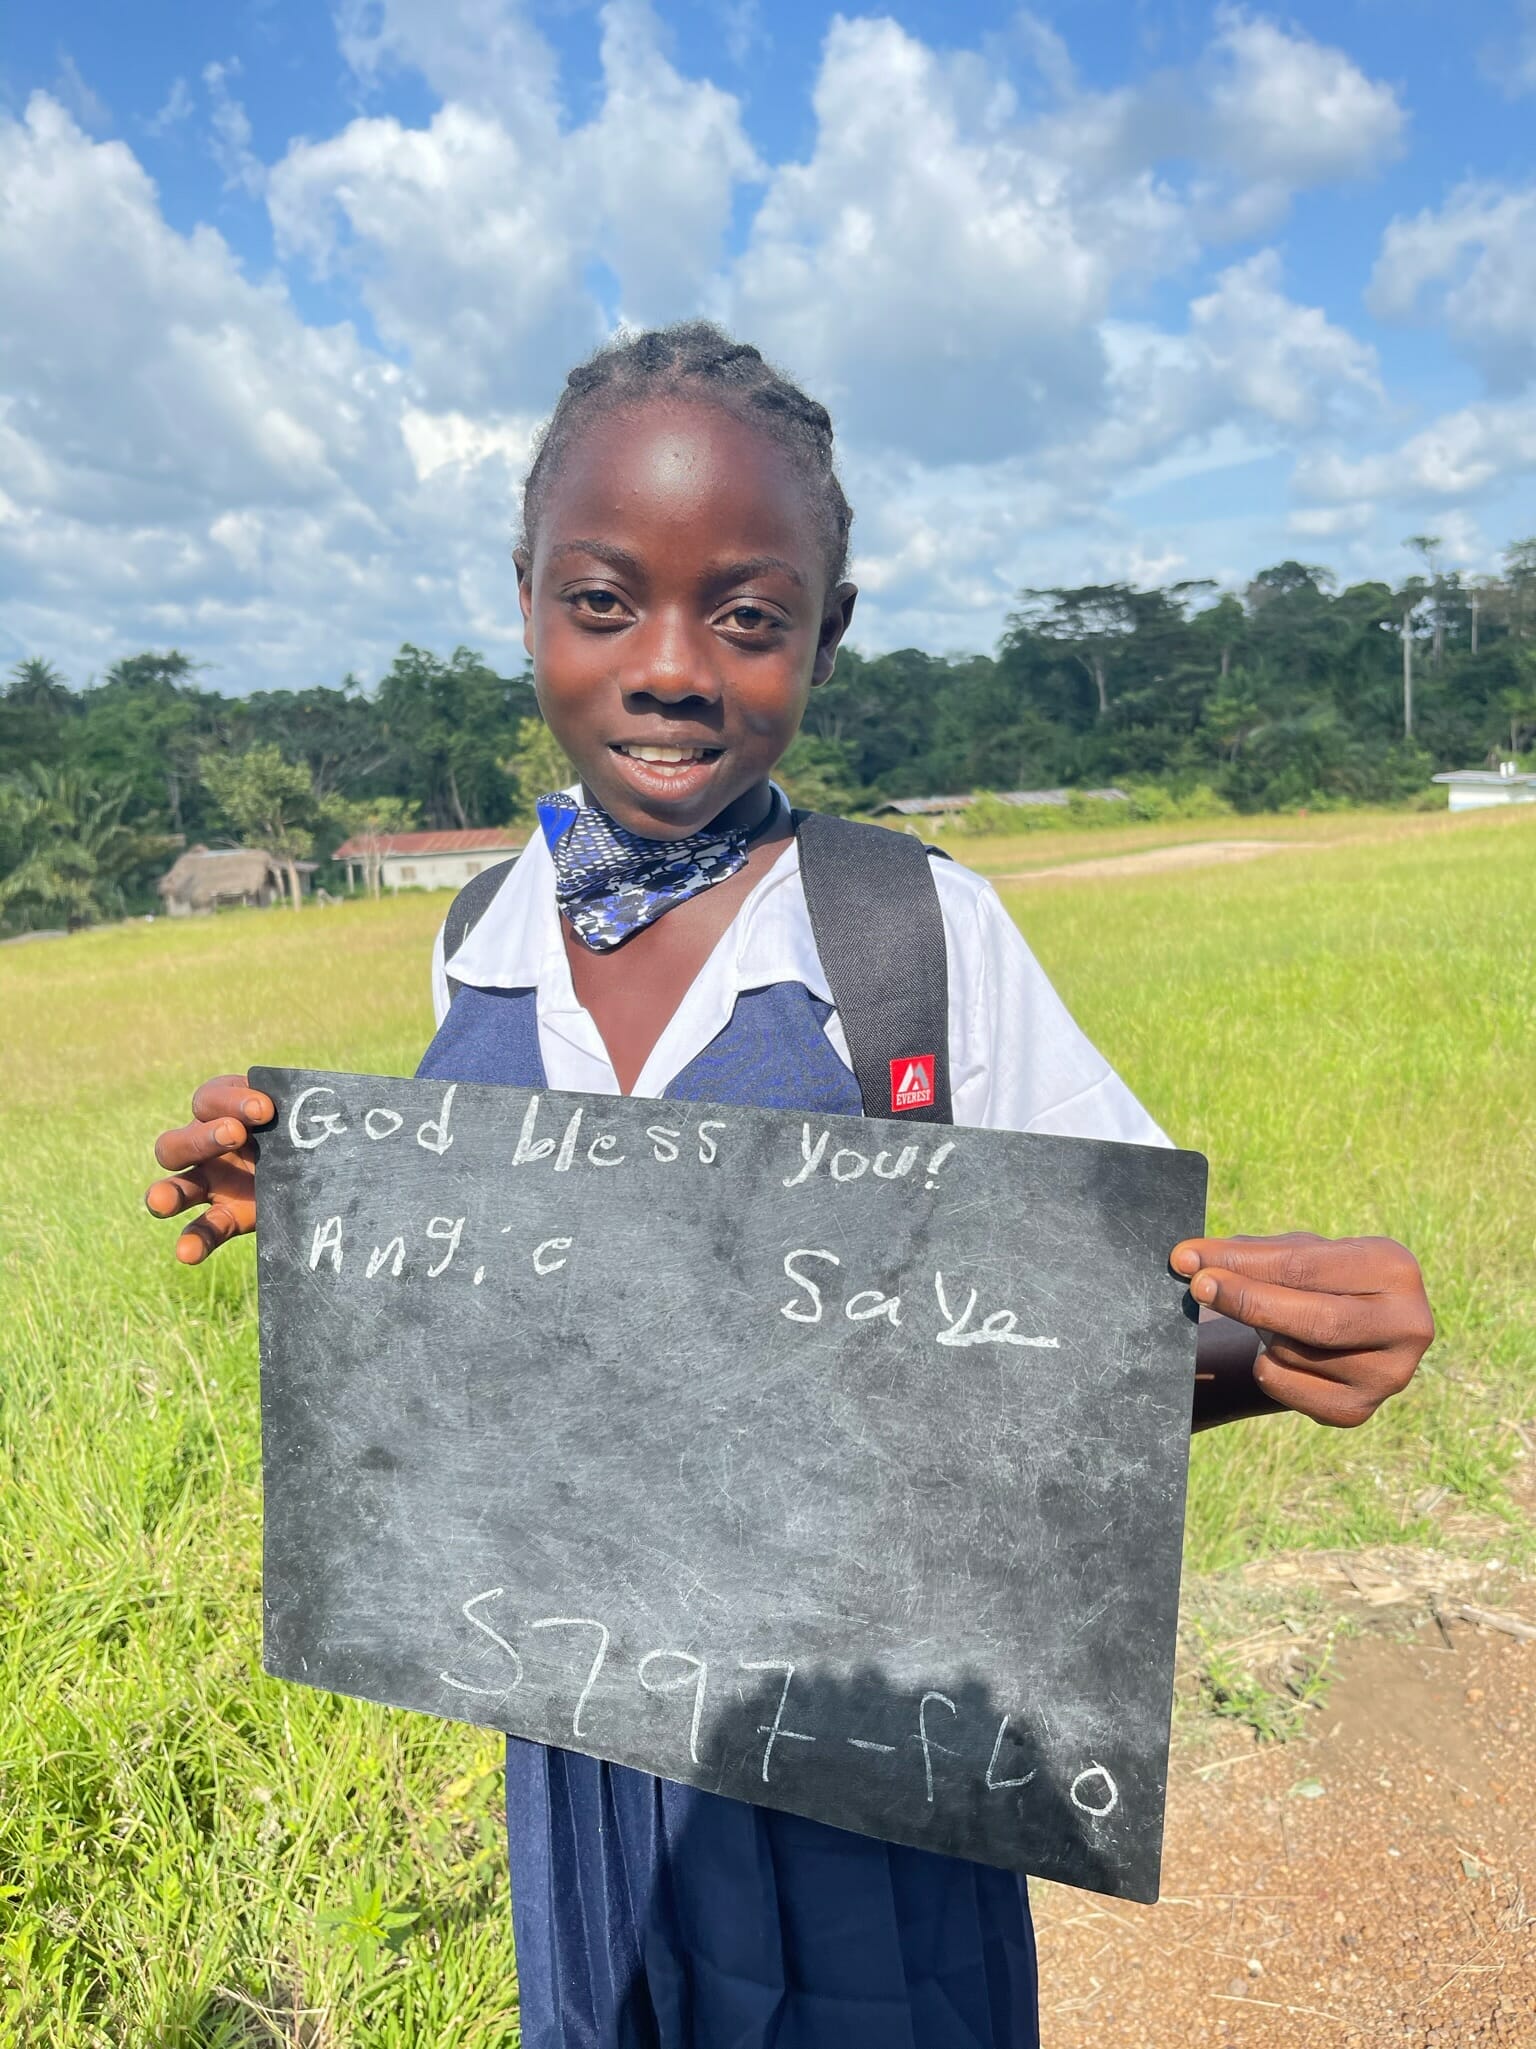 EVEREST
God bless you!
Angie Saye
S797-fLo